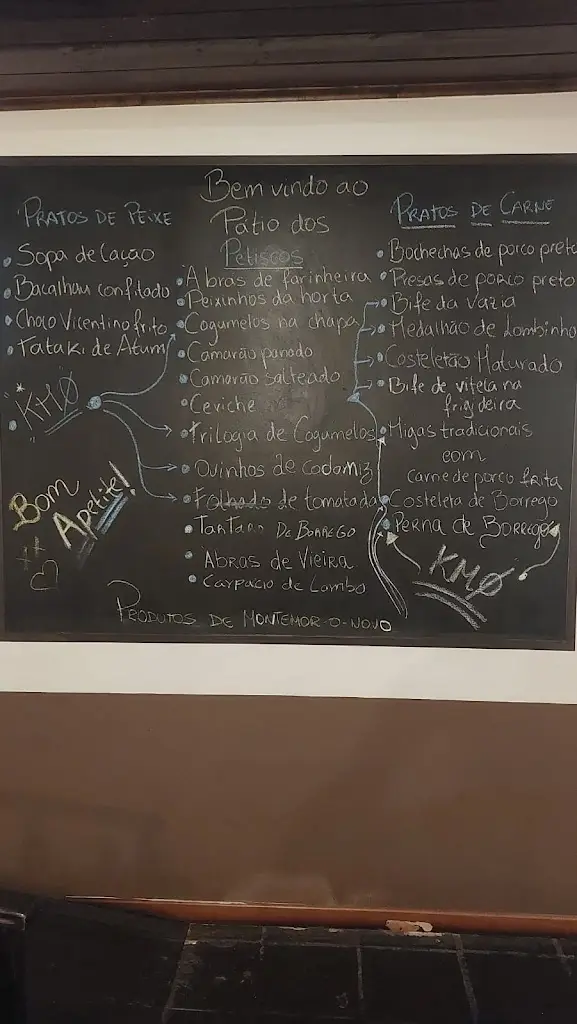 Bem vindo ao
Pátio dos
Petiscos
PRATOS DE PEIXE
Sopa de Cação
Bacalhau confitado
Choco Vicentino frito
Tataki de Atum
"KMØ"
Bom
Apetite!
Abras de farinheira
Peixinhos da horta
Cogumelos na chapa
Camarão panado
Camarão salteado
Ceviche
Trilogia de Cogumelos
Ovinhos de codorniz
Folhado de tomatada
TARTARO DE BORREGO
Abras de Vieira
Carpacio de Lombo
PRATOS DE CARNE
Bochechas de porco preto
Presas de porco preto
Bife da vazia
Medalhão de Lombinho
Costeletão Maturado
Bife de vitela na
frigideira
Migas tradicionais
com
carne de porco frita
Costeleta de Borrego
Perna de Borrego
KMØ
PRODUTOS DE MONTEMOR-O-NOVO